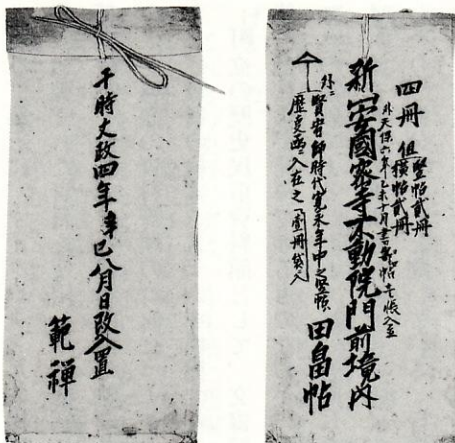 四冊 但 竪帖貳冊
横帖貳冊
外天保六年乙未十月書新帖壱帳入置
新安國寺不動院門前境内
田畠帖
外ニ賢宥師時代寛永年中之竪帳
歴支函ニ入在之 壹冊袋入
于時文政四年辛巳八月日改入置
範禅